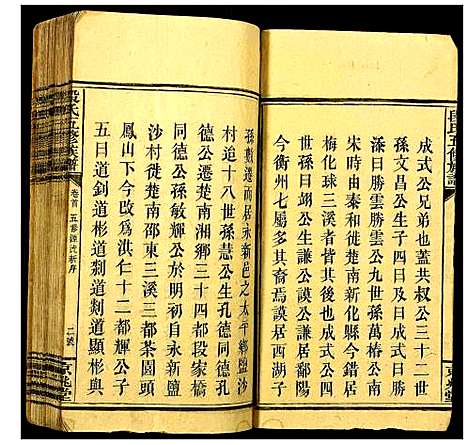 成式公兄弟也蓋共叔公三十二世
孫文昌公生子四日及日成式日勝
渙日勝雲公九世孫萬椿公南
宋時由秦和徙楚南新化縣
梅化球三溪者皆其後也公四
世孫日翊公生謙公謨公謙居鄱陽
今衡州七屬多其裔焉謨居西湖子
孫數遷而居永新邑之太平鄉鹽沙
村迨十八世孫慧公生孔德同德孔
德公遷楚南湘鄉三十四都段家橋
同德公孫敏輝公於明初自永新鹽
沙村徙楚南邵東三溪三都茶園頭
鳳山下今改為洪仁十二都輝公子
五日道釗道彬道剡道顯彬與
段氏五修族譜
卷首
五修源流新序
二號
京兆堂